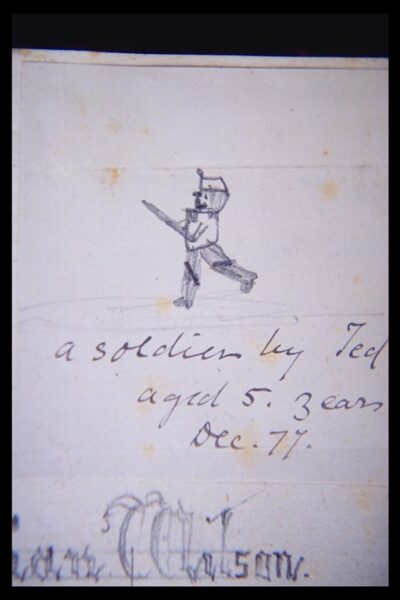 a soldier by Ted
aged 5. years
Dec. 77.
Wilson.